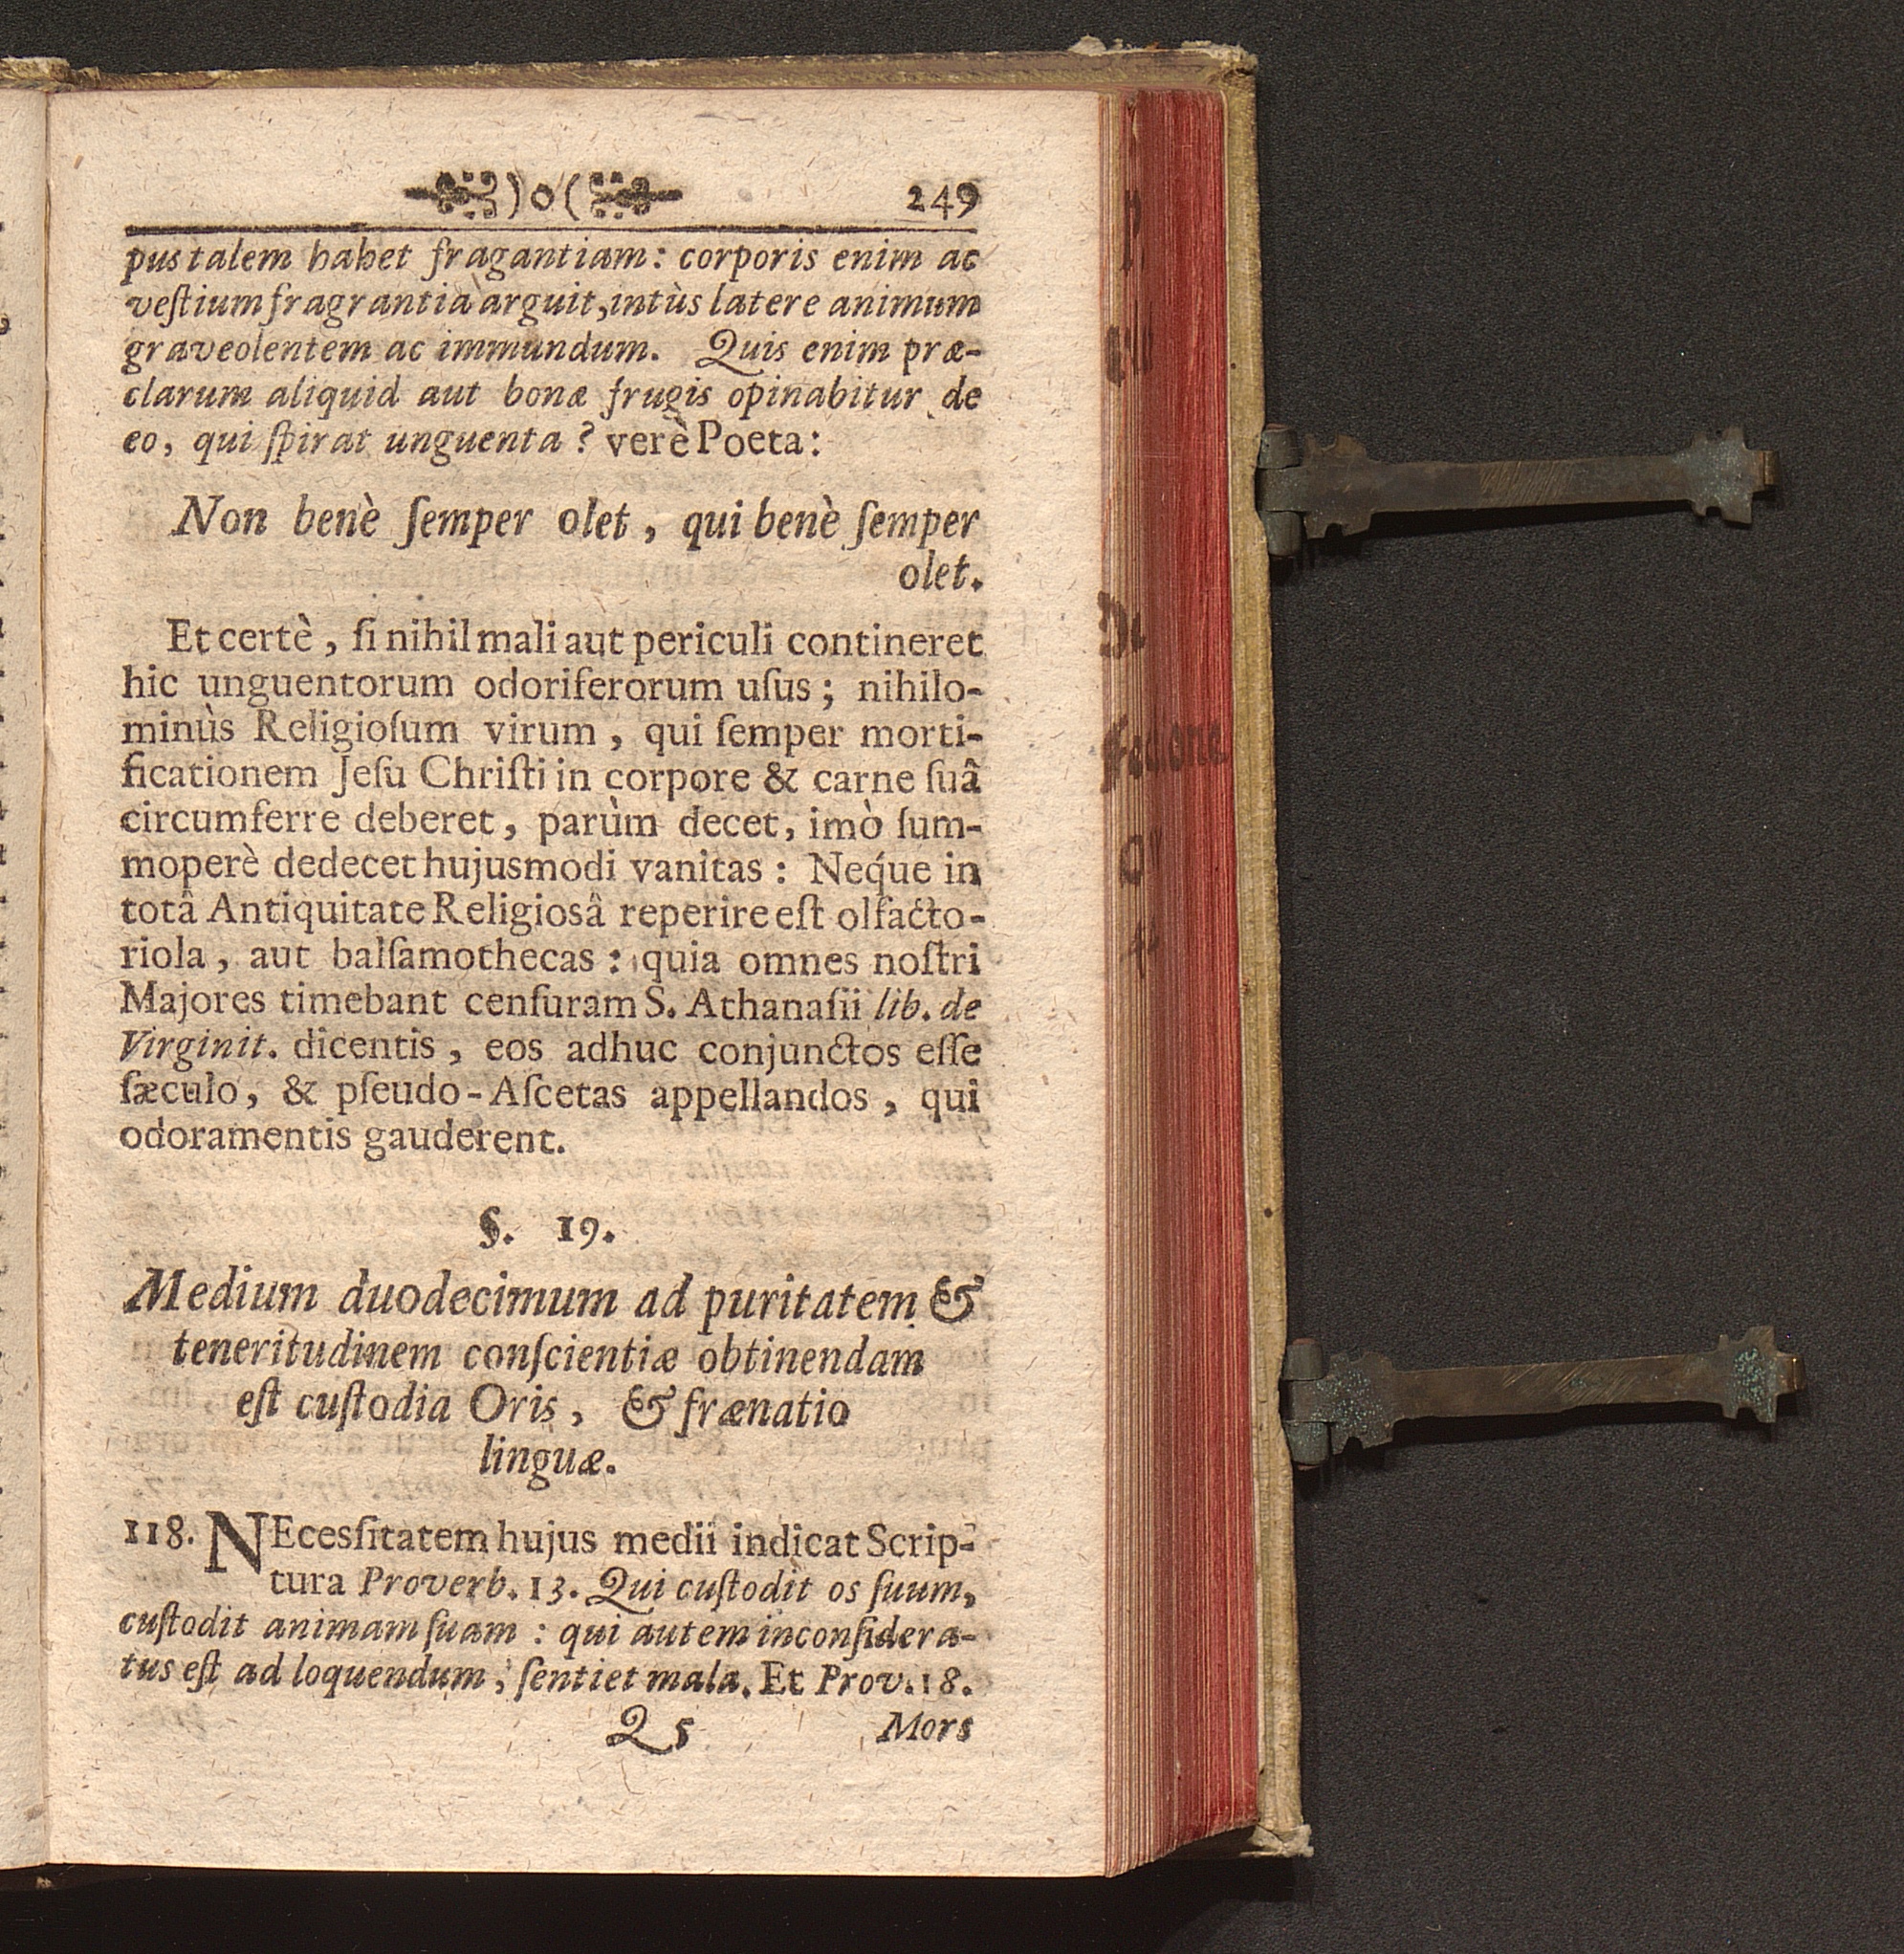 )o( 249
pus talem habet fragantiam: corporis enim ac
veſtium fragrantia arguit, intùs latere animum
graveolentem ac immundum. Quis enim præ-
clarum aliquid aut bonæ frugis opinabitur de
eo, qui ſpirat unguenta? verè Poeta:
Non benè ſemper olet, qui benè ſemper
olet.
Et certè, ſi nihil mali aut periculi contineret
hic unguentorum odoriferorum uſus; nihilo-
minùs Religioſum virum, qui ſemper morti-
ficationem Jeſu Chriſti in corpore & carne ſuâ
circumferre deberet, parùm decet, imò ſum-
moperè dedecet hujusmodi vanitas: Neq́ue in
totâ Antiquitate Religiosâ reperire eſt olfacto-
riola, aut balſamothecas: quia omnes noſtri
Majores timebant cenſuram S. Athanaſii lib. de
Virginit. dicentis, eos adhuc conjunctos eſſe
ſæculo, & pſeudo-Aſcetas appellandos, qui
odoramentis gauderent.
§. 19.
Medium duodecimum ad puritatem &
teneritudinem conſcientiæ obtinendam
eſt cuſtodia Oris, & frænatio
linguæ.
118. NEcesſitatem hujus medii indicat Scrip-
tura Proverb. 13. Qui cuſtodit os ſuum,
cuſtodit animam ſuam: qui autem inconſidera-
tus eſt ad loquendum, ſentiet mala. Et Prov. 18.
Q 5 Mors